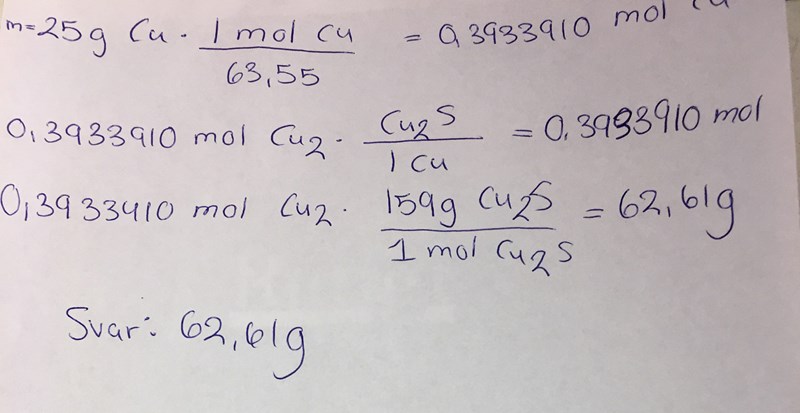 m=25g Cu · 1 mol Cu / 63,55 = 0,3933910 mol Cu
0,3933910 mol Cu₂ · Cu₂S / 1 Cu = 0,3933910 mol
0,3933910 mol Cu₂ · 159g Cu₂S / 1 mol Cu₂S = 62,61g
Svar: 62,61g